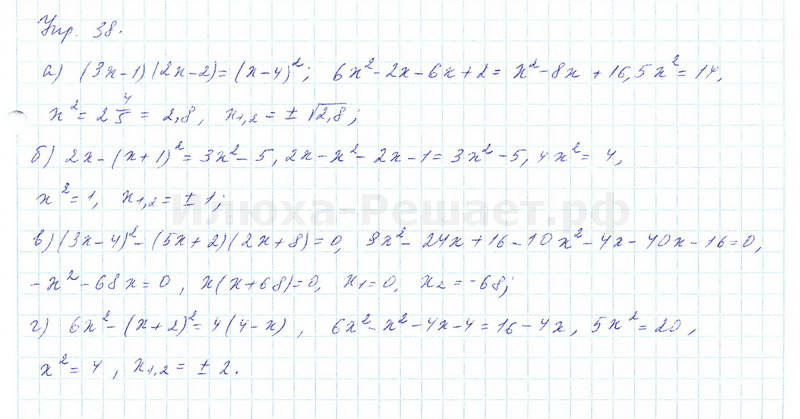 Упр. 38.
а) (3x-1)(2x-2)=(x-4)²; 6x²-2x-6x+2=x²-8x+16, 5x²=14,
x²=2 4/5=2,8, x₁,₂=±√2,8;
б) 2x-(x+1)²=3x²-5, 2x-x²-2x-1=3x²-5, 4x²=4,
x²=1, x₁,₂=±1;
Илюха-Решает.рф
в) (3x-4)²-(5x+2)(2x+8)=0, 9x²-24x+16-10x²-4x-40x-16=0,
-x²-68x=0, x(x+68)=0, x₁=0, x₂=-68;
г) 6x²-(x+2)²=4(4-x), 6x²-x²-4x-4=16-4x, 5x²=20,
x²=4, x₁,₂=±2.